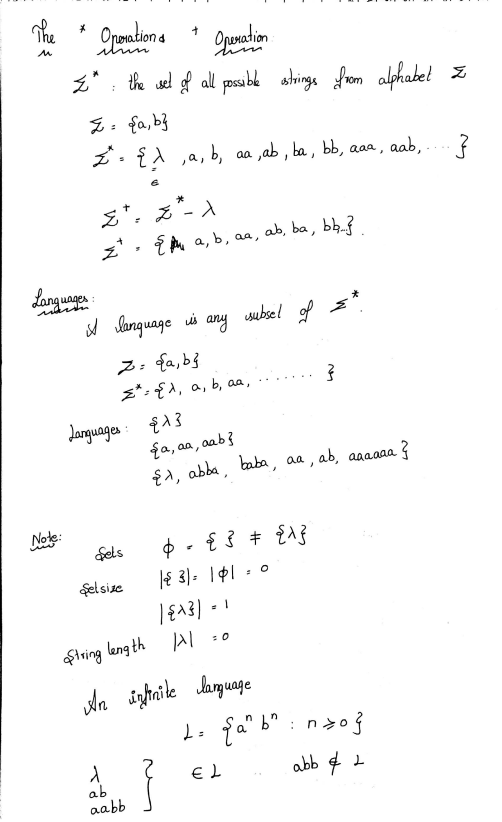 The * Operations + Operation
Σ* : the set of all possible strings from alphabet Σ
Σ = {a,b}
Σ* = { λ , a, b, aa, ab, ba, bb, aaa, aab, .... }
ϵ
Σ+ = Σ* - λ
Σ+ = { a, b, aa, ab, ba, bb,..}.
Languages:
A language is any subset of Σ*.
Σ = {a,b}
Σ* = {λ, a, b, aa, ........ }
Languages: {λ}
{a, aa, aab}
{λ, abba, baba, aa, ab, aaaaaa}
Note:
Sets ϕ = { } ≠ {λ}
Set size |{ }| = |ϕ| = 0
|{λ}| = 1
String length |λ| = 0
An infinite language
L = {aⁿ bⁿ : n ≥ 0}
λ
ab } ∈ L abb ∉ L
aabb